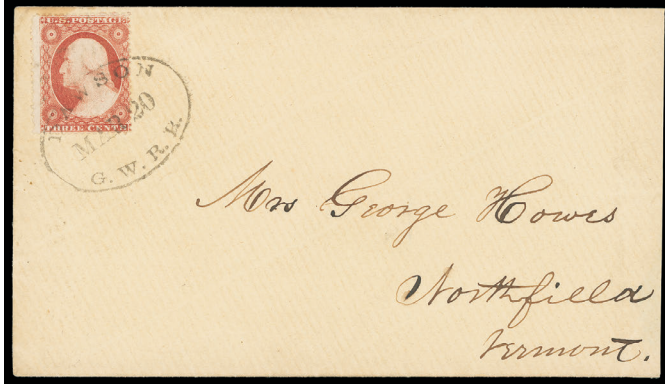 U.S. POSTAGE
THREE CENTS
DAWSON
MAR 20
G. W. R. R.
Mrs George Howes
Northfield
Vermont.